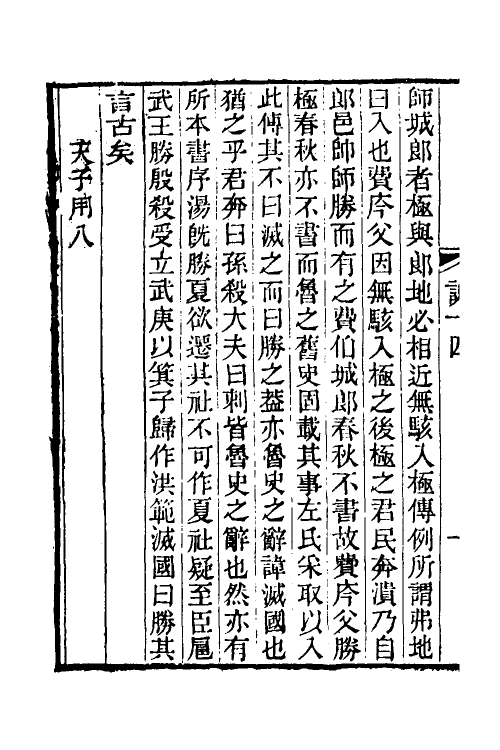 師城郎者極與郎地必相近無駭入極傳例所謂弗地
曰入也費庈父因無駭入極之後極之君民奔潰乃自
郎邑帥師勝而有之費伯城郎春秋不書故費庈父勝
極春秋亦不書而魯之舊史固載其事左氏采取以入
此傳其不曰滅之而曰勝之葢亦魯史之辭諱滅國也
猶之乎君奔曰孫殺大夫曰刺皆魯史之辭也然亦有
所本書序湯旣勝夏欲遷其社不可作夏社疑至臣扈
武王勝殷殺受立武庚以箕子歸作洪範滅國曰勝其
言古矣
天子用八